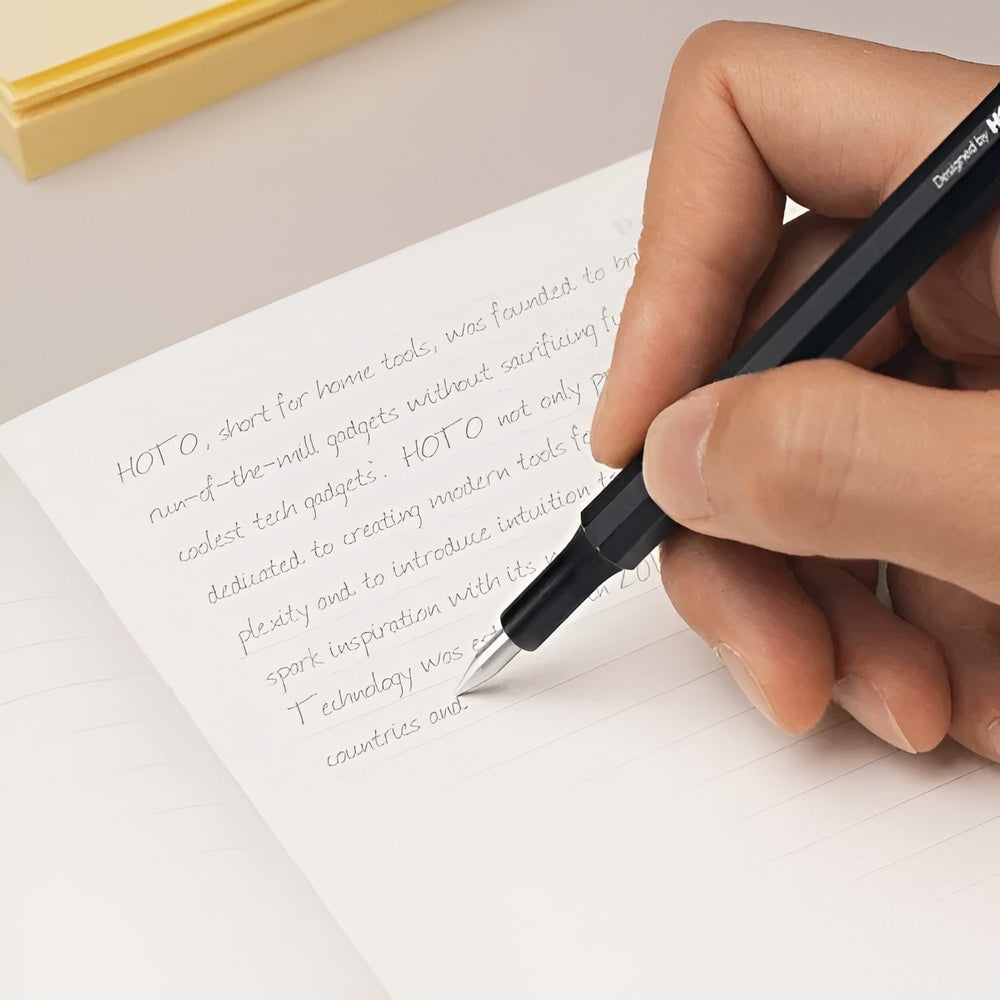 HOTO, short for home tools, was founded to bri
run-of-the-mill gadgets without sacrificing fu
coolest tech gadgets. HOTO not only p
dedicated to creating modern tools fo
plexity and to introduce intuition t
spark inspiration with its
Technology was es
countries and
Designed by